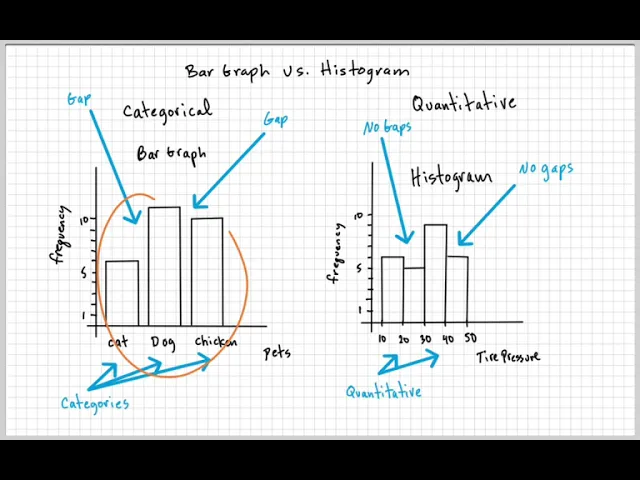 Bar Graph vs. Histogram
Gap
Categorical
Gap
Bar Graph
frequency
10
5
1
Cat
Dog
Chicken
Pets
Categories
Quantitative
No Gaps
Histogram
No gaps
frequency
10
5
1
10 20 30 40 50
Tire Pressure
Quantitative